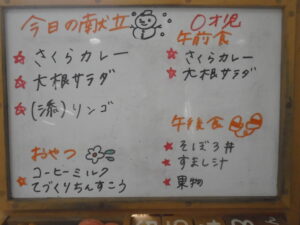 今日の献立
さくらカレー
大根サラダ
(添)リンゴ
おやつ
コーヒーミルク
てづくりちんすこう
0才児
午前食
さくらカレー
大根サラダ
午後食
そぼろ丼
すまし汁
果物